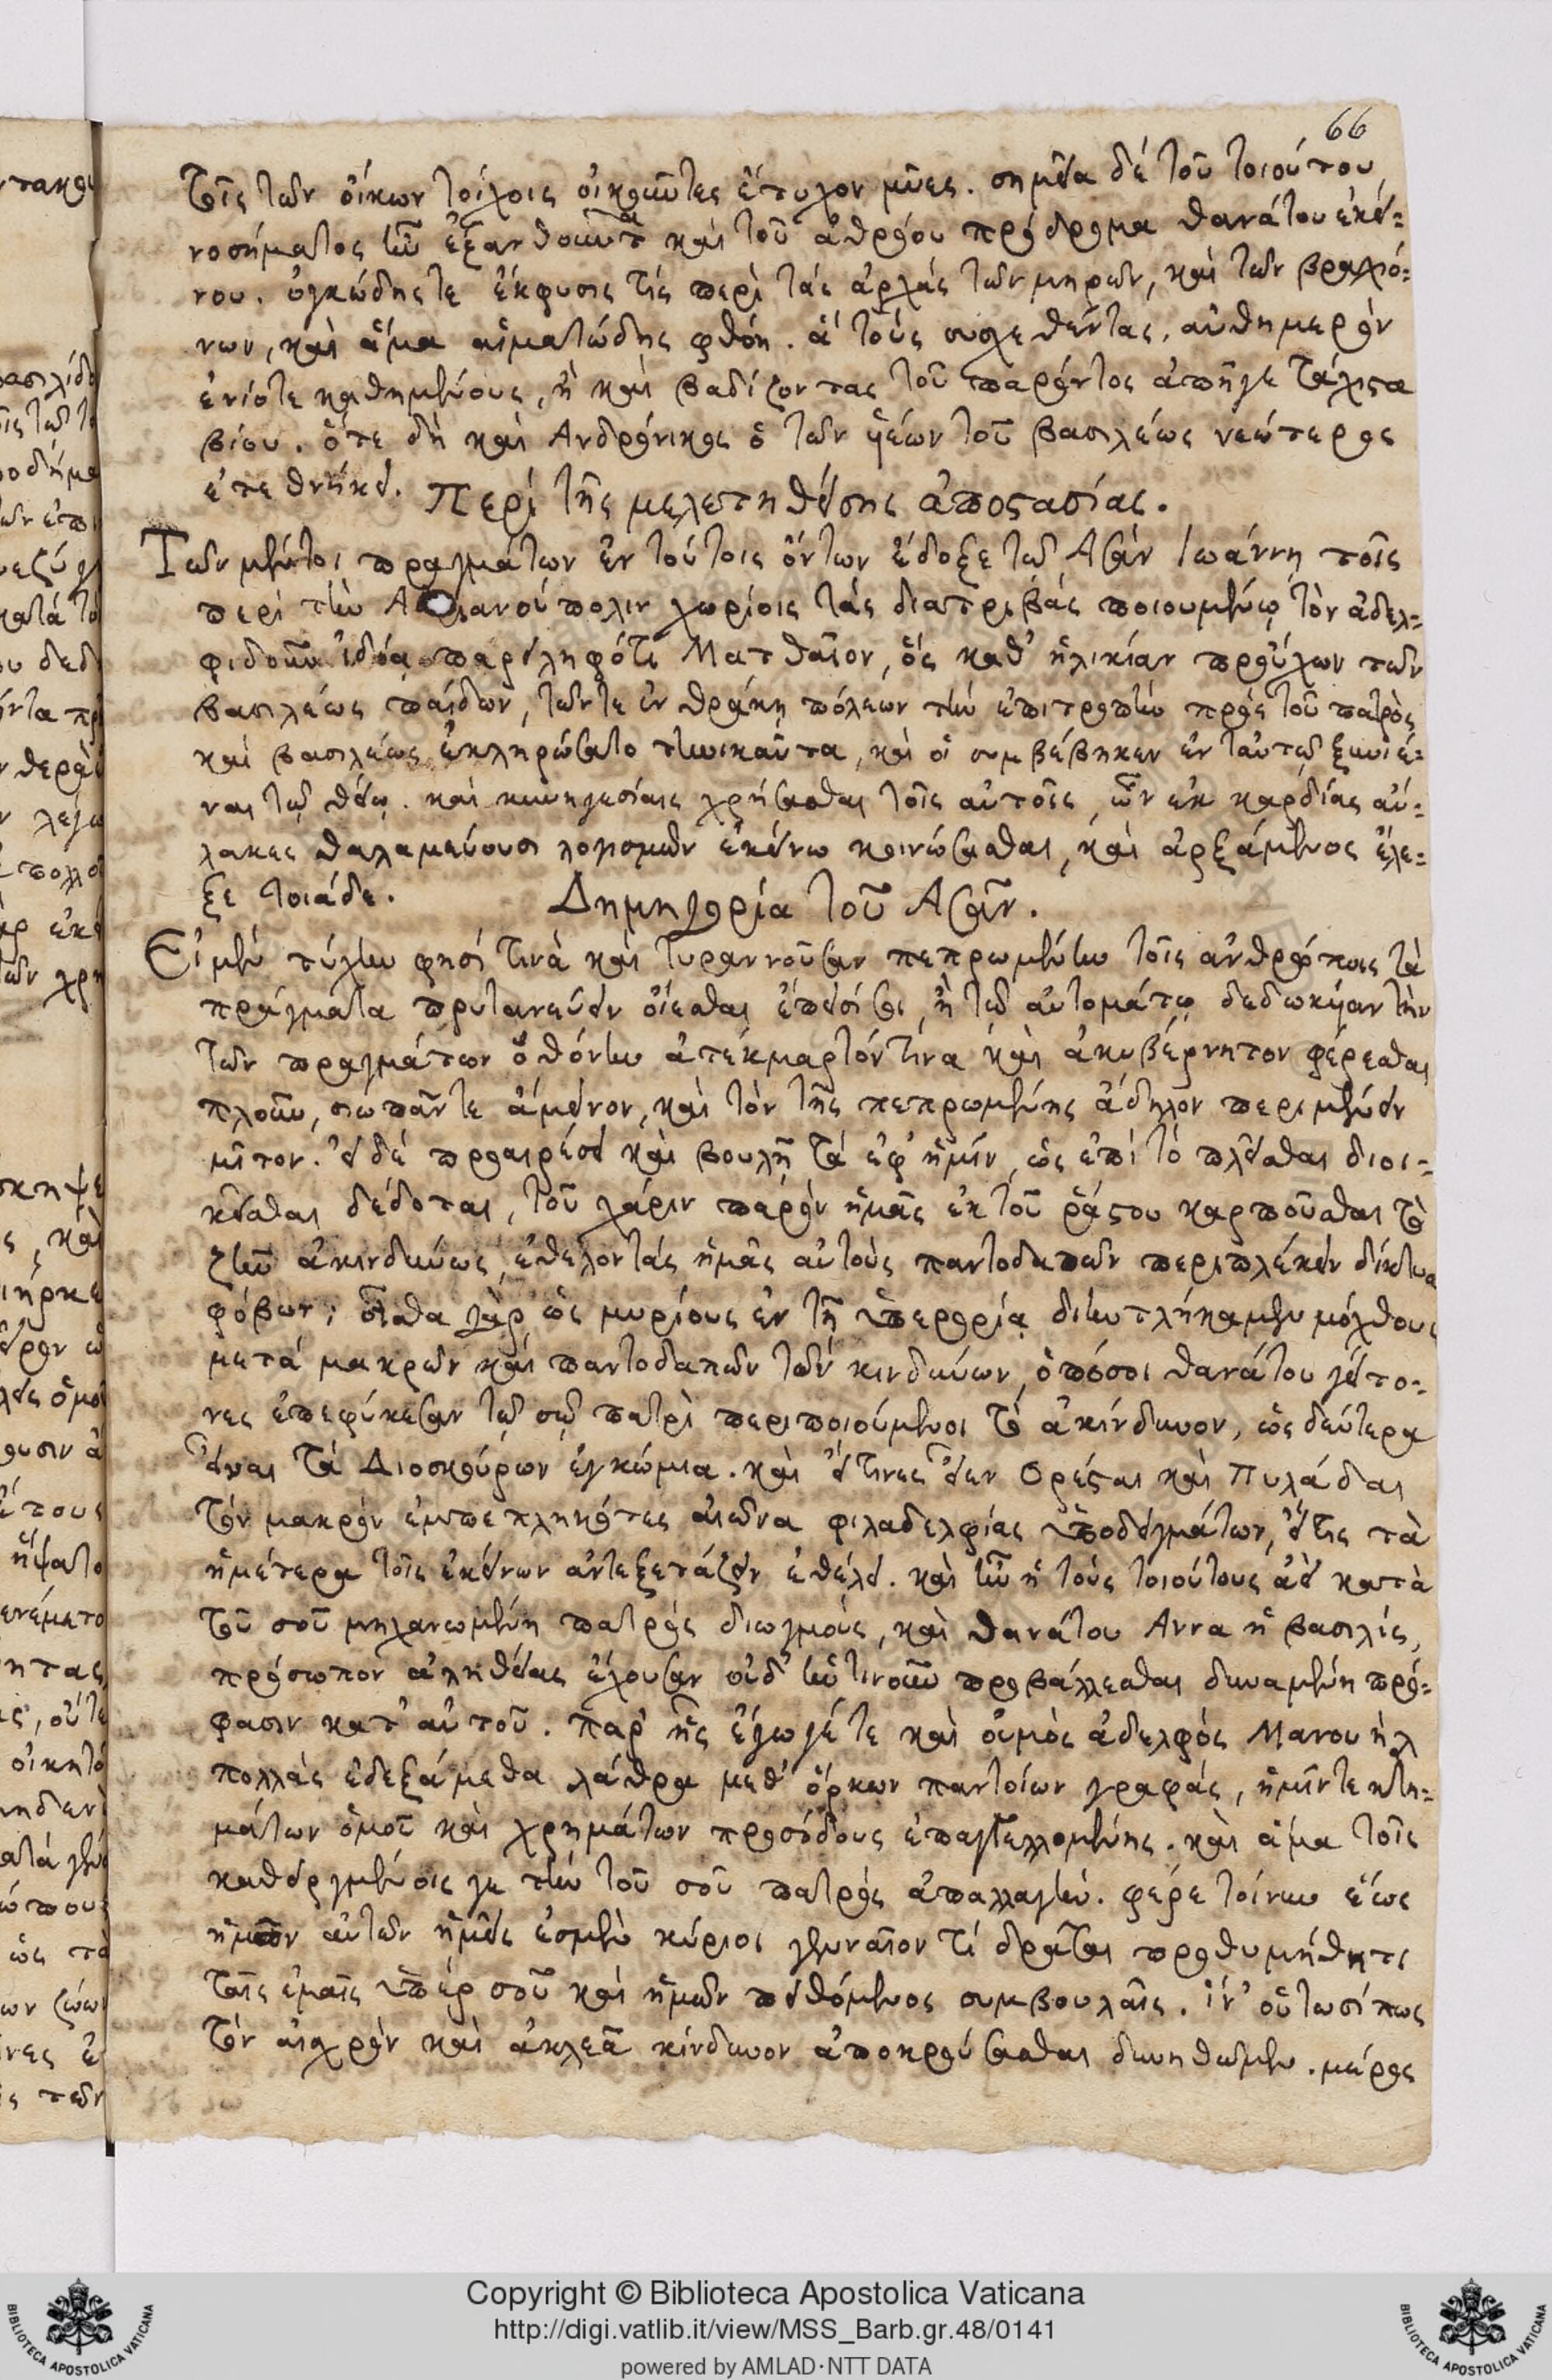 66
τοῖς τῶν οἴκων τοίχοις οἰκοῦντες ἔτυχον μῦες. σημεῖα δὲ τοῦ τοιούτου
νοσήματος ἦν ἐξανθοῦντα καὶ τοῦ ἀθρόου πρόδρομα θανάτου ἐκεί-
νου. ὀγκώδης τε ἔκφυσις τίς περὶ τὰς ἀρχὰς τῶν μηρῶν, καὶ τῶν βραχιό-
νων, καὶ ἅμα αἱματώδης φθόη. ἃ τοὺς συσχεθέντας, αὐθημερὸν
ἐνίοτε καθημένους, ἢ καὶ βαδίζοντας τοῦ παρόντος ἀπῆγε τάχιστα
βίου. ὅτε δὴ καὶ Ἀνδρόνικος ὁ τῶν υἱέων τοῦ βασιλέως νεώτερος
ἐτεθνήκει. Περὶ τῆς μελετηθείσης ἀποστασίας.
Τῶν μέντοι πραγμάτων ἐν τούτοις ὄντων ἔδοξε τῷ Ἀσὰν Ἰωάννῃ τοῖς
περὶ τὴν χωρίοις τὰς διατριβὰς ποιουμένῳ τὸν ἀδελ-
φιδοῦν ἰδίᾳ παρειληφότι Ματθαῖον, ὃς καθ' ἡλικίαν προὔχων τῶν
βασιλέως παίδων, τῶν τε ἐν θράκῃ πόλεων τὴν ἐπιτροπὴν πρὸς τοῦ πατρὸς
καὶ βασιλέως ἐκληρώσατο τηνικαῦτα, καὶ οἷ συμβέβηκεν ἐν ταὐτῷ ξυνιέ-
ναι τῷ θείῳ. καὶ κυνηγεσίαις χρήσασθαι τοῖς αὐτοῖς, ὧν ἐκ καρδίας αὔ-
λακες θαλαμεύουσι λογισμῶν ἐκείνῳ κοινώσασθαι, καὶ ἀρξάμενος ἔλε-
ξε τοιάδε. Δημηγορία τοῦ Ἀσάν.
Εἰ μὲν τύχην φησί τινὰ καὶ τυραννοῦσαν πεπρωμένην τοῖς ἀνθρώποις τὰ
πράγματα πρυτανεύειν οἴεσθαι ἔπεισί σοι, ἢ τῷ αὐτομάτῳ δεδωκυῖαν τὴν
τῶν πραγμάτων ὀθόνην ἀτέκμαρτόν τινα καὶ ἀκυβέρνητον φέρεσθαι
πλοῦν, σιωπᾶν τε ἄμεινον, καὶ τὸν τῆς πεπρωμένης ἄδηλον περιμένειν
μίτον. εἰ δὲ προαιρέσει καὶ βουλῇ τὰ ἐφ' ἡμῖν, ὡς ἐπὶ τὸ πλεῖσθαι διοι-
κεῖσθαι δέδοται, τοῦ χάριν παρὸν ἡμᾶς ἐκ τοῦ ῥάστου καρποῦσθαι τὸ
ζῆν ἀκινδύνως, ἐθελοντὰς ἡμᾶς αὐτοὺς παντοδαπῶν περιπλέκειν δίκτυα
φόβων; οἶσθα γὰρ ὡς μυρίους ἐν τῇ ὑπερορίᾳ διηντλήκαμεν μόχθους
μετὰ μακρῶν καὶ παντοδαπῶν τῶν κινδύνων, ὁπόσοι θανάτου γείτο-
νες ἐπεφύκεσαν τῷ σῷ πατρὶ περιποιούμενοι τὸ ἀκίνδυνον, ὡς δεύτερα
εἶναι τὰ Διοσκούρων ἐγκώμια. καὶ εἴ τινες εἶεν Ὀρέσται καὶ Πυλάδαι
τὸν μακρὸν ἐμπεπληκότες αἰῶνα φιλαδελφίας ὑποδειγμάτων, εἴ τις τὰ
ἡμέτερα τοῖς ἐκείνων ἀντεξετάζειν ἐθέλει. καὶ ἦν ἡ τοὺς τοιούτους ἀεὶ κατὰ
τοῦ σοῦ μηχανωμένη πατρὸς διωγμοὺς, καὶ θανάτου Ἄννα ἡ βασιλὶς,
πρόσωπον ἀληθείας ἔχουσαν οὐδ' ἡντινοῦν προβάλλεσθαι δυναμένη πρό-
φασιν κατ' αὐτοῦ. παρ' ἧς ἔγωγέ τε καὶ οὑμὸς ἀδελφὸς Μανουὴλ
πολλὰς ἐδεξάμεθα λάθρα μεθ' ὅρκων παντοίων γραφὰς, ἡμῖν τε κτη-
μάτων ὁμοῦ καὶ χρημάτων προσόδους ἐπαγγελλομένης. καὶ ἅμα τοῖς
καθειργμένοις γε τὴν τοῦ σοῦ πατρὸς ἀπαλλαγήν. φέρε τοίνυν ἕως
ἡμῶν αὐτῶν ἡμεῖς ἐσμὲν κύριοι γενναῖον τί δρᾶσαι προθυμήθητι
ταῖς ἐμαῖς ὑπὲρ σοῦ καὶ ἡμῶν πειθόμενος συμβουλαῖς. ἵν' οὑτωσί πως
τὸν αἰσχρὸν καὶ ἀκλεᾶ κίνδυνον ἀποκρούσασθαι δυνηθῶμεν. μέρος
Copyright © Biblioteca Apostolica Vaticana
http://digi.vatlib.it/view/MSS_Barb.gr.48/0141
powered by AMLAD·NTT DATA
BIBLIOTECA APOSTOLICA VATICANA
BIBLIOTECA APOSTOLICA VATICANA